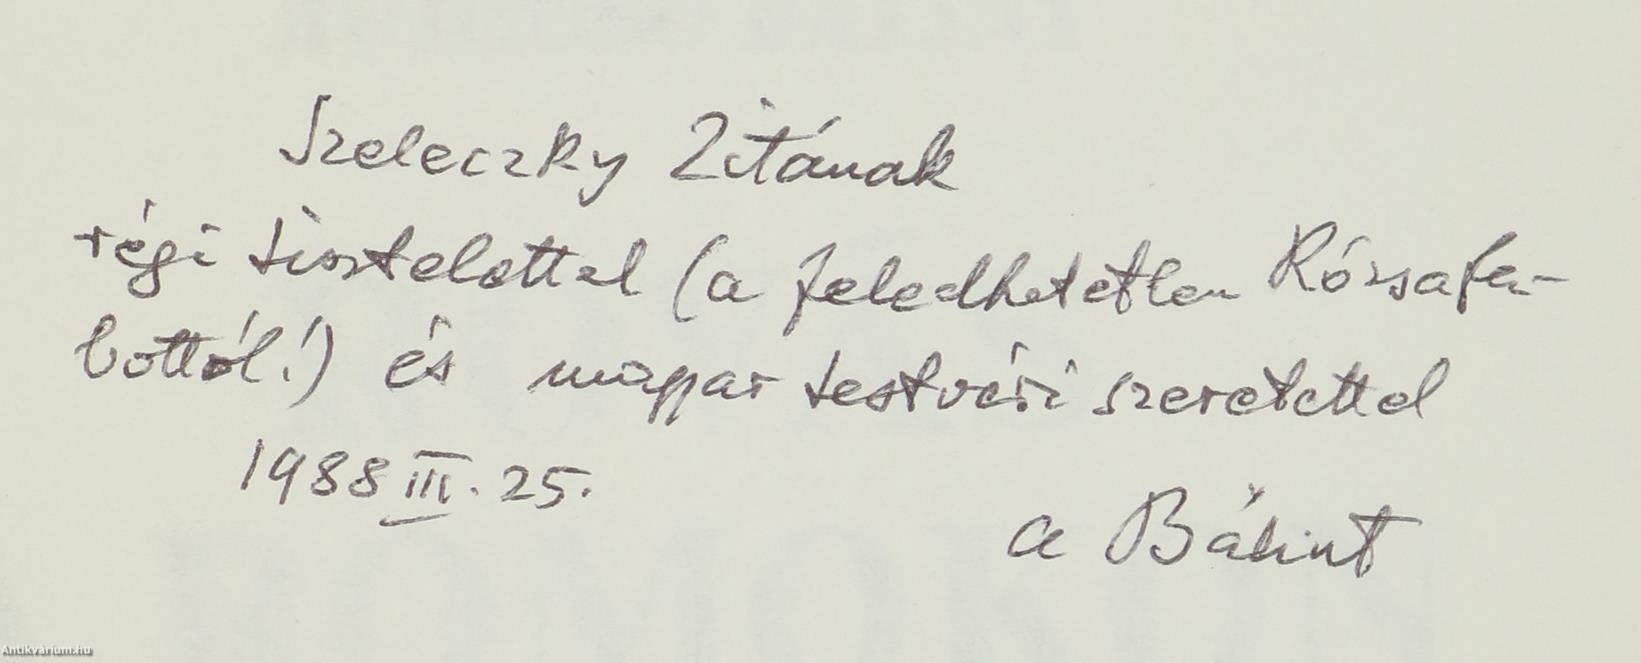 Szeleczky Zitának
régi tisztelettel (a feledhetetlen Rózsafa-
bottól!) és magyar testvéri szeretettel
1988 III. 25.
a Bálint
Antikvárium.hu